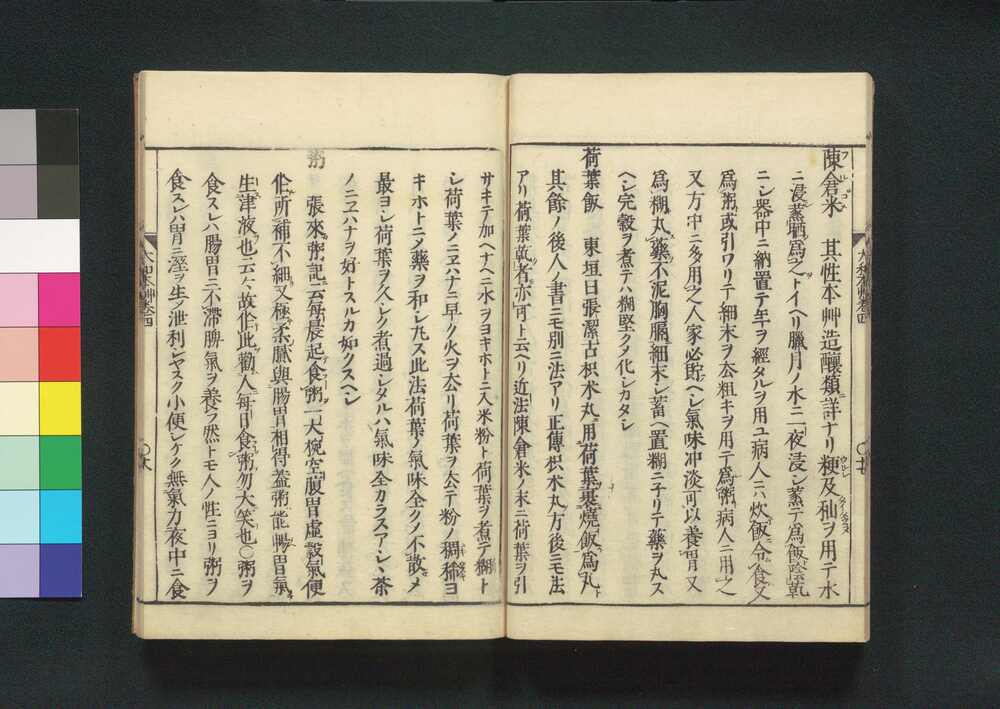 陳倉米 其性本艸造釀類詳ナリ粳及秈ヲ用テ水
ニ浸蒸晒為之トイヘリ臘月ノ水ニ一夜浸シ蒸テ為飯陰乾
ニシ器中ニ納置テ年ヲ經タルヲ用ユ病人ニハ炊飯令食又
為粥或引ワリテ細末ヲ去粗キヲ用テ為粥病人ニ用之
又方中ニ多用之人家必貯ヘシ氣味冲淡可以養胃又
為糊丸藥不泥胸膈細末シ蓄ヘ置糊ニ子リテ藥ヲ丸ス
ヘシ完穀ヲ煮テハ糊堅クメ化シカタシ
荷葉飯 東垣曰張潔古枳朮丸用荷葉裹燒飯為丸
其餘ノ後人ノ書ニモ別ニ法アリ正傳枳朮丸方後ニモ法
アリ荷葉乾者亦可ト云ヘリ近法陳倉米ノ末ニ荷葉ヲ引
サキテ加ヘナヘニ水ヲヨキホトニ入米粉ト荷葉ヲ煮テ糊ト
シ荷葉ノニヱハナニ早ク火ヲ去リ荷葉ヲ去テ粉ノ稠稀ヨ
キホトニメ藥ヲ和シ丸ス此法荷葉ノ氣味全クメ不散メ
最ヨシ荷葉ヲ久シク煮過シタルハ氣味全カラスアシヽ茶
ノニヱハナヲ好トスルカ如クスヘシ
粥 張來粥記云每晨起食粥一大椀空腹胃虛穀氣便
作所補不細又極柔膩與腸胃相得蓋粥能暢胃氣
生津液也云々故作此勸人每日食粥勿大笑也○粥ヲ
食スレハ腸胃ニ不滯勝氣ヲ養フ然トモ人ノ性ニヨリ粥ヲ
食スレハ胃ニ溼ヲ生メ泄利シヤスク小便シケク無氣力夜中ニ食
大和本艸卷四
大和本艸卷四